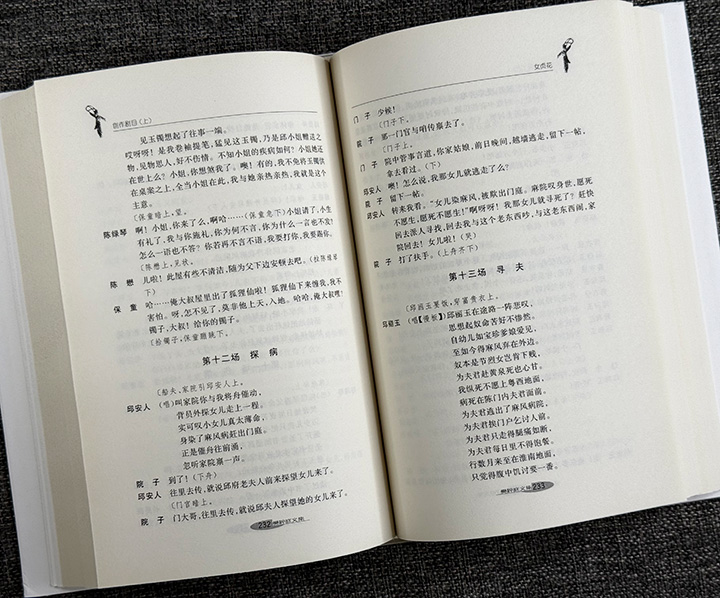 创作剧目(上)
见玉镯想起了往事一端。
哎呀呀!是我卷袖提笔,猛见这玉镯,乃是邱小姐赠送之
物,见物思人,好不伤情。不知小姐的疾病如何?小姐她还
在世上么?小姐,你想煞我了。噢!有的,我不免将玉镯供
在桌案之上,全当小姐在此,我与她亲热亲热,我就是这个
主意。
〔保童暗上,望。
陈绿琴 啊!小姐,你来了么,啊哈……(保童兔下)小姐请了,小生
有礼了,我与你施礼,你为何不言,你为什么一言也不发?
怎么一语也不答?你若再不言不语,我要打你,我要
〔陈懋上,见状。
陈 懋 儿啦!此屋有些不清洁,随为父下边安顿去吧。(拉陈绿琴
下)
保 童 哈……俺大叔屋里出了狐狸仙啦!狐狸仙下来缠我,我不
害怕。呀,怎不见了,莫非他上天,入地。哈哈,俺大叔哩!
镯子,大叔!给你的镯子。
〔拾镯子,保童蹦跳下。
第十二场 探 病
〔船夫、家院引邱安人上。
邱安人 (唱)叫家院你与我将舟催动,
背员外探女儿走上一程。
实可叹小女儿真太薄命,
身染了麻风病赶出门庭。
正是催舟往前涌,
忽听家院禀一声。
院 子 到了!(下舟)
邱安人 往里去传,就说邱府老夫人前来探望女儿来了。
〔门官暗上。
院 子 门大哥,往里去传,就说邱安人探望她的女儿来了。
232 文集
女贞花
门 子 少候!
〔门子下。
院 子 那一门官与咱传禀去了。
〔门子上。
门 子 院中管事言道,你家姑娘,前日晚间,越墙逃走,留下一帖,
拿去看过。(下)
邱安人 噢!怎么说,我那女儿就逃走了么?
院 子 留下一帖。
邱安人 转来我看。“女儿染麻风,被欺出门庭。麻院叹身世,愿死
不愿生,愿死不愿生!”啊呀呀!我那女儿就寻死了?赶快
回去派人寻找,回去我与这个老东西吵,与这老东西闹,家
院回去!女儿啦!(哭)
院 子 打了扶手。(上舟齐下)
第十三场 寻 夫
〔邱丽玉要饭,穿富贵衣上。
邱丽玉 (唱【慢板】)邱丽玉在途路一阵悲叹,
思想起奴命苦好不惨然。
自幼儿如宝珍爹娘爱见,
至如今得麻风弃在外边。
奴本是节烈女岂肯下贱,
为夫君赴黄泉死也心甘。
我纵死不愿上粤西地面,
病死在陈门内夫君面前。
为夫君逃出了麻风病院,
为夫君挨门户乞讨人前。
为夫君只走得腿痛如断,
为夫君每日里不得饱餐。
行数月来至在淮南地面,
只觉得腹中饥讨要一番。
文集 233